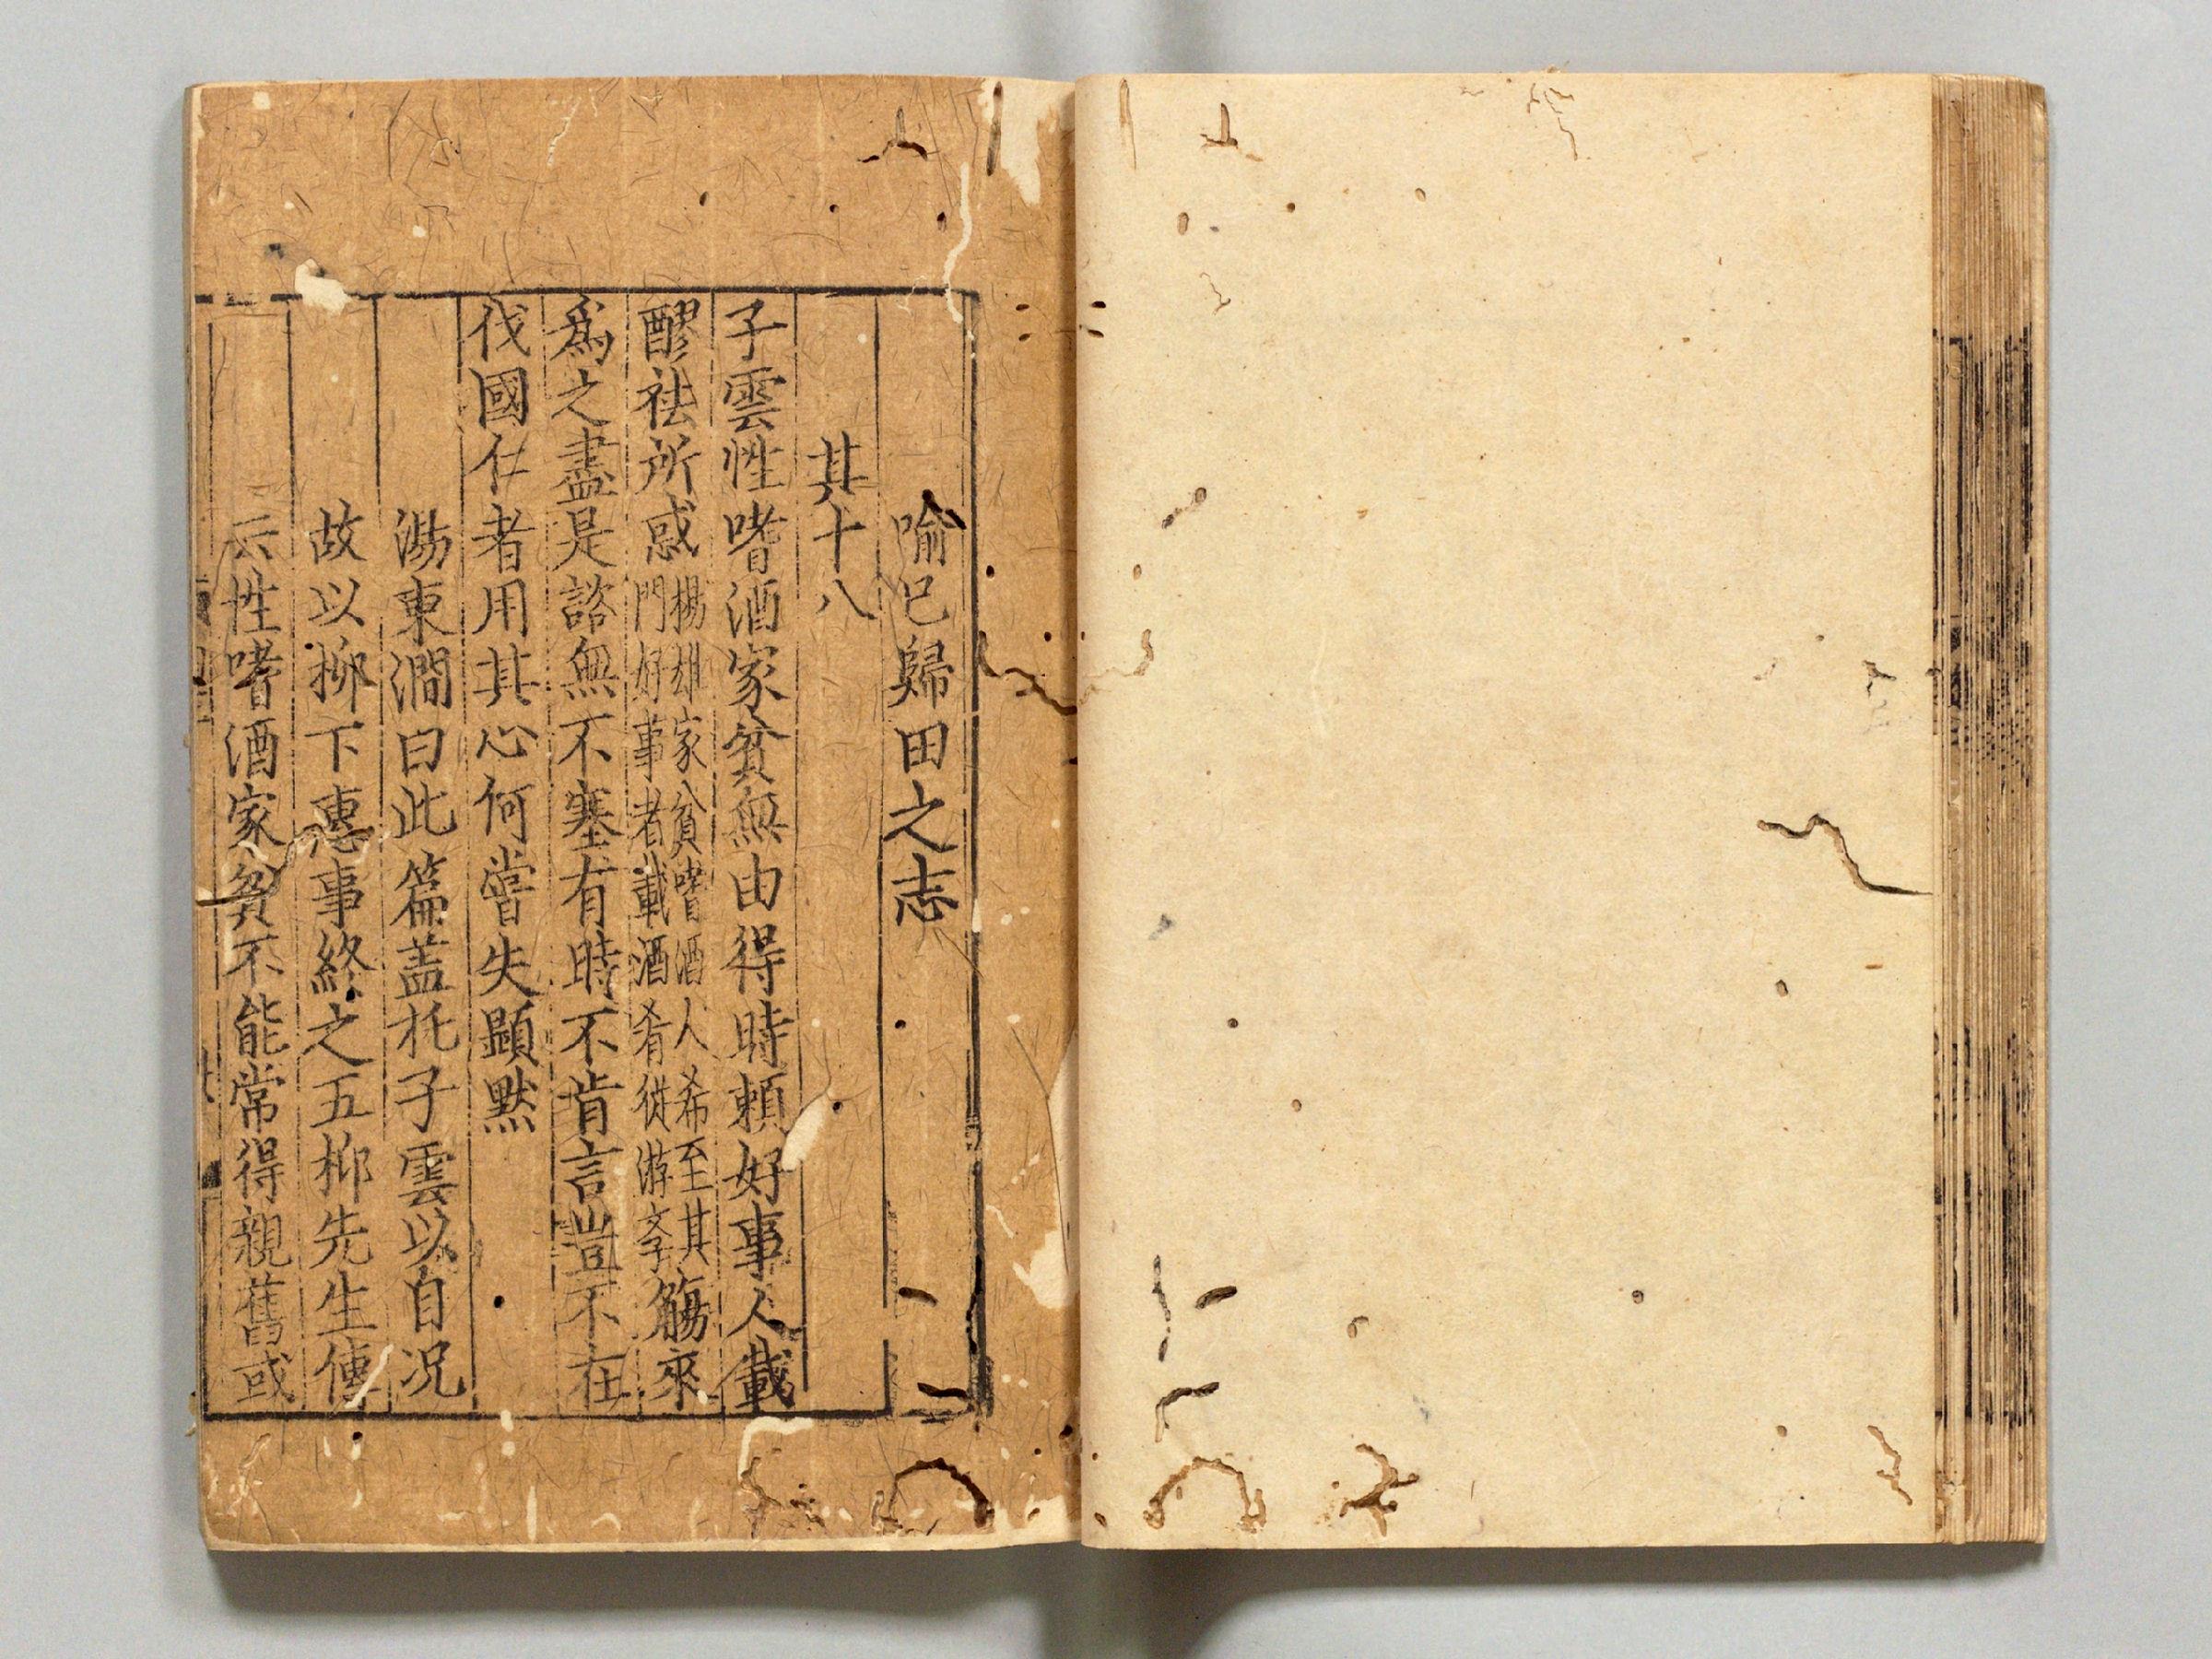 喻已歸田之志
其十八
子雲性嗜酒家貧無由得時頼好事人載
醪祛所惑楊雄家貧嗜酒人希至其門好事者載酒肴従游斈觴來
爲之盡是諮無不塞有時不肯言豈不在
伐國仁者用其心何嘗失顕黙
湯東澗曰此篇盖托子雲以自况
故以柳下惠事終之五柳先生傳
云性嗜酒家貧不能常得親舊或